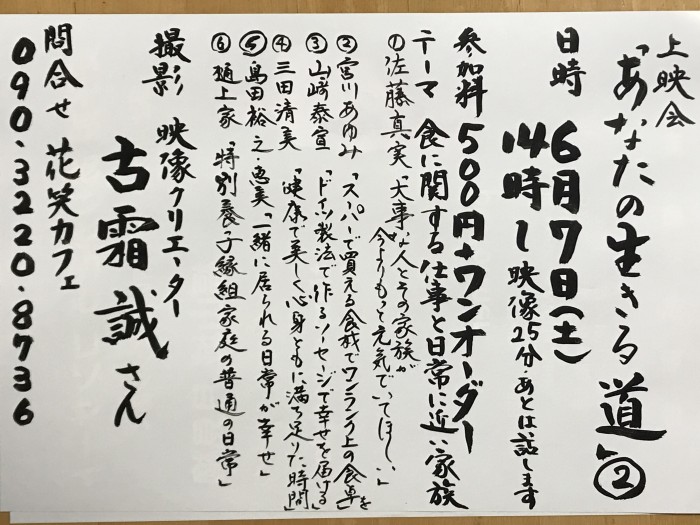 上映会
「あなたの生きる道」②
日時 6月7日(土)
14時〜映像25分・あとは話します
参加料 500円+ワンオーダー
テーマ 食に関する仕事と日常に近い家族
①佐藤真実「大事な人とその家族が
今よりもっと元気でいてほしい」
②宮川あゆみ「スーパーで買える食材でワンランク上の食卓を」
③山崎泰宣「ドイツ製法で作るソーセージで幸せを届ける」
④三田清美「健康で美しく心身ともに満ち足りた時間」
⑤島田裕之・恵美「一緒に居られる日常が幸せ」
⑥樋上家「特別養子縁組家庭の普通の日常」
撮影 映像クリエーター
古霜誠さん
問合せ 花笑カフェ
090・3220・8736